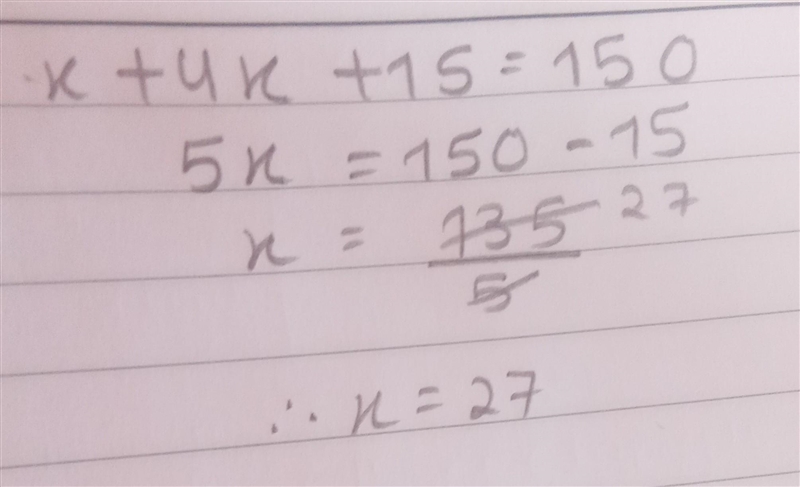 x + 4x + 15 = 150
5x = 150 - 15
x = 135/5 27
∴ x = 27